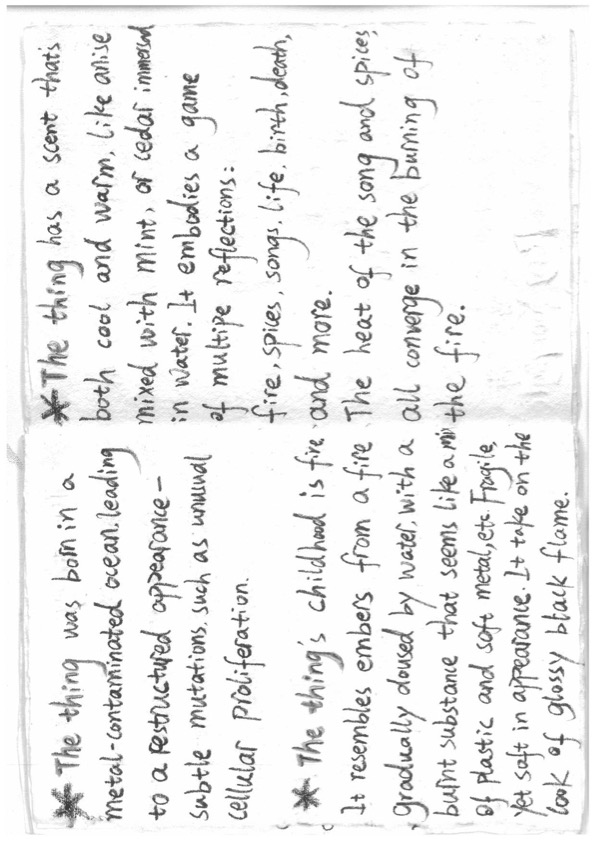 * The thing was born in a
metal-contaminated ocean, leading
to a restructured appearance—
subtle mutations, such as unusual
cellular proliferation.
* The thing's childhood is fire.
It resembles embers from a fire
gradually doused by water, with a
burnt substance that seems like a mix
of plastic and soft metal, etc. Fragile,
yet soft in appearance. It take on the
look of glossy black flame.
* The thing has a scent that's
both cool and warm, like anise
mixed with mint, or cedar immersed
in water. It embodies a game
of multipe reflections:
fire, spices, songs, life, birth, death,
and more.
The heat of the song and spices,
all converge in the burning of
the fire.